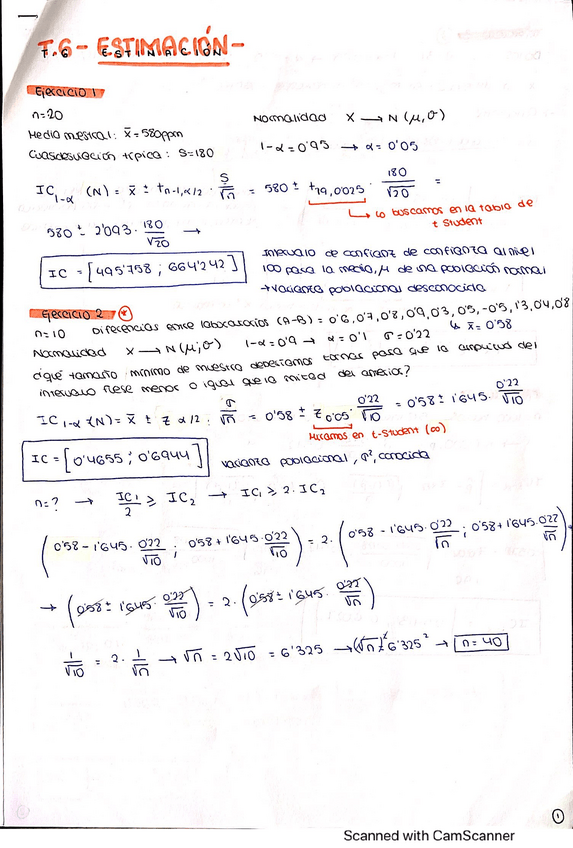 T.6- ESTIMACIÓN-
Ejercicio 1
n=20
Normalidad X → N(μ, σ)
Media muestral: x̄ = 580ppm
1-α = 0'95 → α = 0'05
Cuasidesviación típica: S=180
IC₁₋α (N) = x̄ ± tₙ₋₁,α/2 · S/√n = 580 ± t₁₉,₀₀₂₅ · 180/√20 =
↳ lo buscamos en la tabla de t Student
580 ± 2'093 · 180/√20 →
IC = [495'758 ; 664'242]
Intervalo de confianz de confianza al nivel
100 para la media, μ de una población normal
→ varianza poblacional desconocida
Ejercicio 2 *
n=10 Diferencias entre laboratorios (A-B) = 0'6, 0'7, 0'8, 0'9, 0'3, 0'5, -0'5, 1'3, 0'4, 0'8
↳ x̄ = 0'58
Normalidad X → N(μ; σ) 1-α = 0'9 → α = 0'1 σ = 0'22
¿qué tamaño mínimo de muestra deberíamos tomar para que la amplitud del
intervalo fuese menor o igual que la mitad del anterior?
IC₁₋α (N) = x̄ ± z α/2 · σ/√n = 0'58 ± z₀'₀₅ · 0'22/√10 = 0'58 ± 1'645 · 0'22/√10
Miramos en t-Student (∞)
IC = [0'4655 ; 0'6944]
varianza poblacional, σ², conocida
n=? → IC₁/2 ≥ IC₂ → IC₁ ≥ 2·IC₂
(0'58 - 1'645 · 0'22/√10 ; 0'58 + 1'645 · 0'22/√10) = 2 · (0'58 - 1'645 · 0'22/√n ; 0'58 + 1'645 · 0'22/√n)
→ (0'58 ± 1'645 · 0'22/√10) = 2 · (0'58 ± 1'645 · 0'22/√n)
1/√10 = 2 · 1/√n → √n = 2√10 = 6'325 → (√n)² = 6'325² → n = 40
1
Scanned with CamScanner